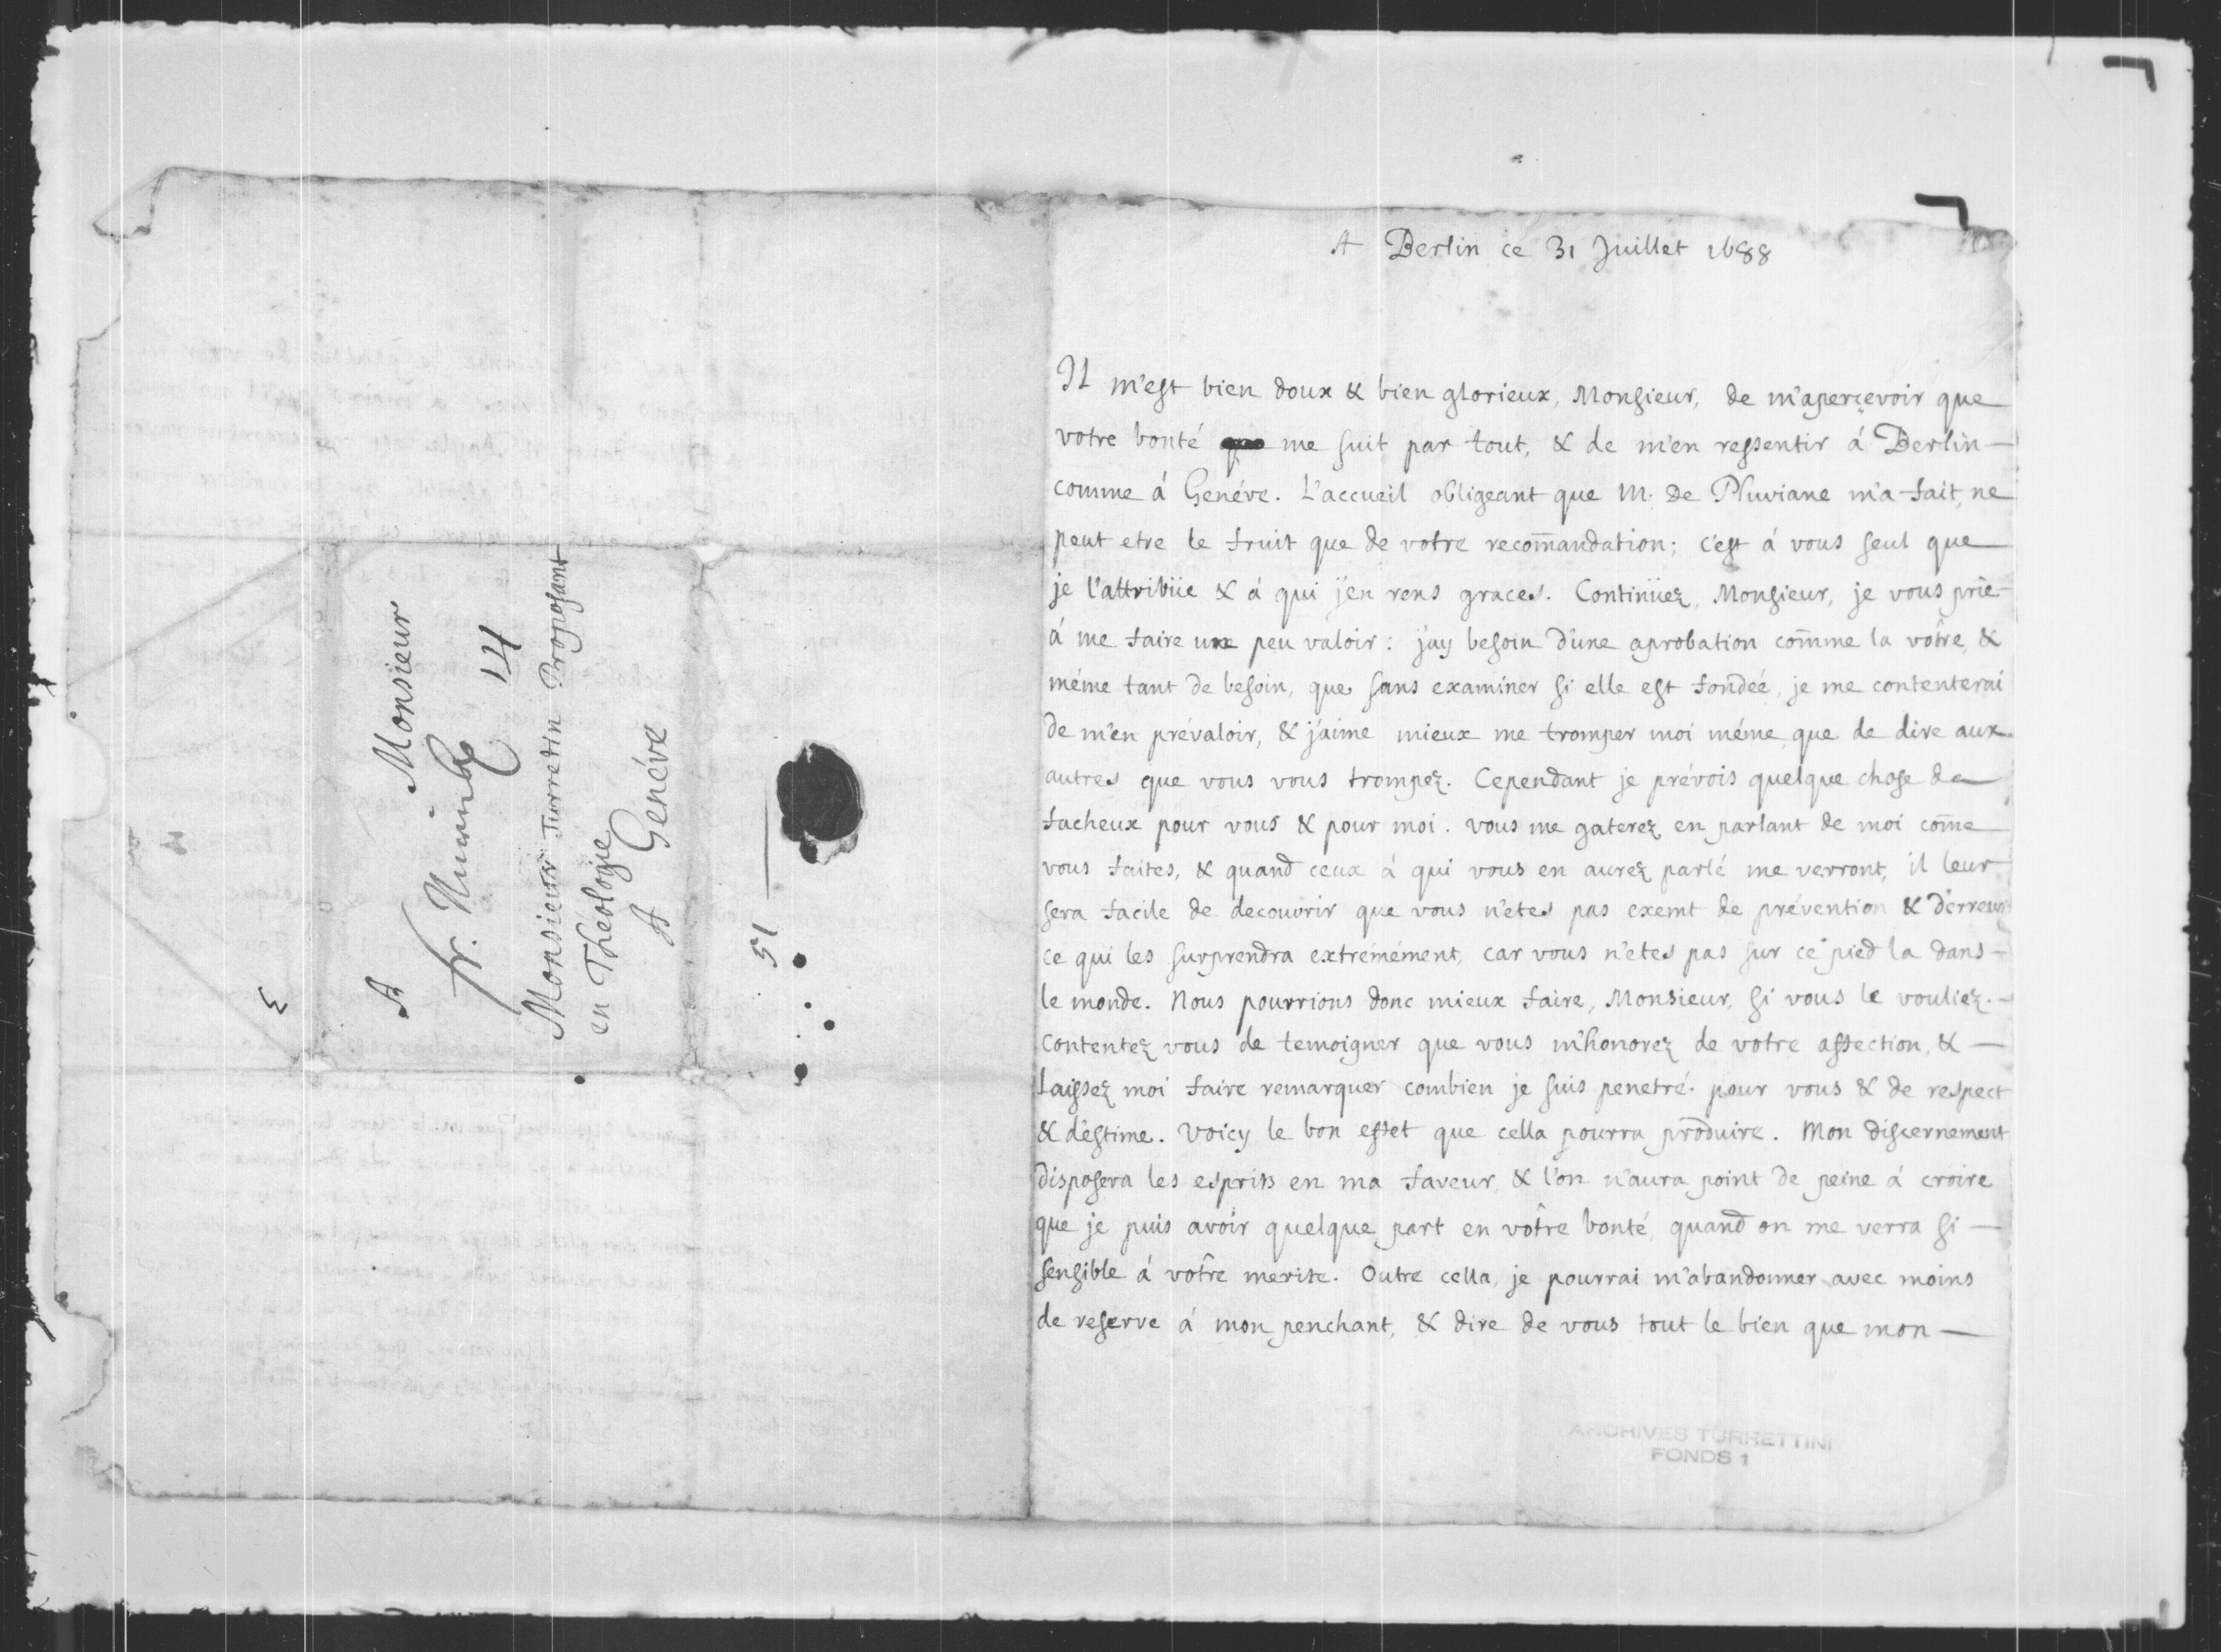 A Monsieur
fr. Nurmb. 14
Monsieur Turretin Proposant
en Théologie
A Genéve
51
A Berlin ce 31 Juillet 1688
Il m'est bien doux & bien glorieux, Monsieur, de m'aperçevoir que
votre bonté me suit par tout, & de m'en ressentir á Berlin
comme á Genéve. L'accueil obligeant que M. de Pluviane m'a fait, ne
peut etre le fruit que de votre recom̄andation; c'est á vous seul que
je l'attribüe & á qui j'en rens graces. Continüez, Monsieur, je vous prie
á me faire une peu valoir: j'ay besoin d'une aprobation com̄e la vôtre, &
méme tant de besoin, que sans examiner si elle est fondeé, je me contenterai
de m'en prévaloir, & j'aime mieux me tromper moi méme, que de dire aux
autres que vous vous trompez. Cependant je prévois quelque chose de
facheux pour vous & pour moi. vous me gaterez en parlant de moi com̄e
vous faites, & quand ceux á qui vous en aurez parlé me verront, il leur
sera facile de decouvrir que vous n'etes pas exemt de prévention & d'erreur
ce qui les surprendra extrémément, car vous n'etes pas sur ce pied la dans
le monde. Nous pourrions donc mieux faire, Monsieur, si vous le vouliez.
Contentez vous de temoigner que vous m'honorez de votre affection, &
laissez moi faire remarquer combien je suis penetré pour vous & de respect
& d'estime. Voicy le bon effet que cella pourra produire. Mon discernement
disposera les esprits en ma faveur, & l'on n'aura point de peine á croire
que je puis avoir quelque part en vôtre bonté, quand on me verra si
sensible á vôtre merite. Outre cella, je pourrai m'abandonner avec moins
de reserve á mon penchant, & dire de vous tout le bien que mon
ARCHIVES TURRETTINI
FONDS 1